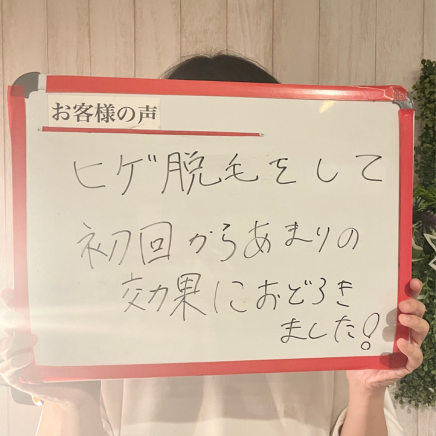 お客様の声
ヒゲ脱毛をして
初回からあまりの
効果におどろき
ました!